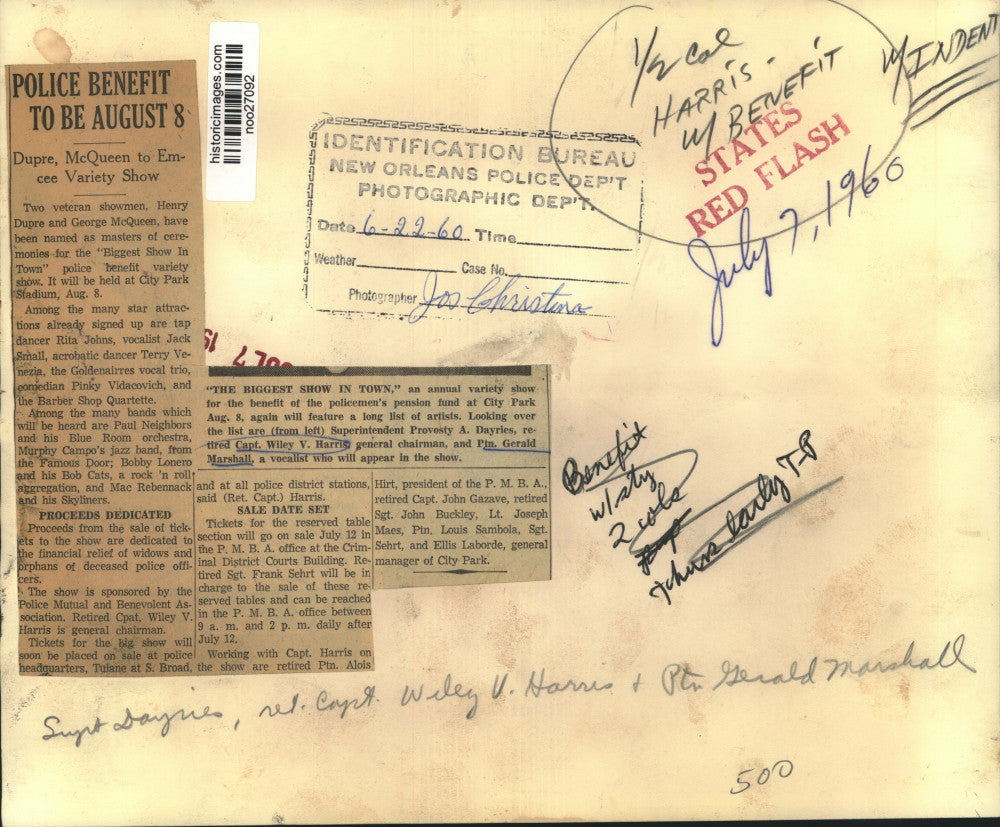 POLICE BENEFIT
TO BE AUGUST 8
Dupre, McQueen to Em-
cee Variety Show
Two veteran showmen, Henry
Dupre and George McQueen, have
been named as masters of cere-
monies for the "Biggest Show In
Town" police benefit variety
show. It will be held at City Park
Stadium, Aug. 8.
Among the many star attrac-
tions already signed up are tap
dancer Rita Johns, vocalist Jack
Small, acrobatic dancer Terry Ve-
nezia, the Goldenairres vocal trio,
comedian Pinky Vidacovich, and
the Barber Shop Quartette.
Among the many bands which
will be heard are Paul Neighbors
and his Blue Room orchestra,
Murphy Campo's jazz band, from
the Famous Door; Bobby Lonero
and his Bob Cats, a rock 'n roll
aggregation, and Mac Rebennack
and his Skyliners.
PROCEEDS DEDICATED
Proceeds from the sale of tick-
ets to the show are dedicated to
the financial relief of widows and
orphans of deceased police offi-
cers.
The show is sponsored by the
Police Mutual and Benevolent As-
sociation. Retired Cpat. Wiley V.
Harris is general chairman.
Tickets for the big show will
soon be placed on sale at police
headquarters, Tulane at S. Broad,
historicimages.com
noo27092
IDENTIFICATION BUREAU
NEW ORLEANS POLICE DEP'T
PHOTOGRAPHIC DEP'T.
Date 6-22-60 Time
Weather Case No.
Photographer Jos Christina
1/2 Col
HARRIS -
W/ BENEFIT
W/INDENT
STATES
RED FLASH
July 7, 1960
JUL 7 19
"THE BIGGEST SHOW IN TOWN," an annual variety show
for the benefit of the policemen's pension fund at City Park
Aug. 8, again will feature a long list of artists. Looking over
the list are (from left) Superintendent Provosty A. Dayries, re-
tired Capt. Wiley V. Harris, general chairman, and Ptn. Gerald
Marshall, a vocalist who will appear in the show.
and at all police district stations,
said (Ret. Capt.) Harris.
SALE DATE SET
Tickets for the reserved table
section will go on sale July 12 in
the P. M. B. A. office at the Crim-
inal District Courts Building. Re-
tired Sgt. Frank Sehrt will be in
charge to the sale of these re-
served tables and can be reached
in the P. M. B. A. office between
9 a. m. and 2 p. m. daily after
July 12.
Working with Capt. Harris on
the show are retired Ptn. Alois
Hirt, president of the P. M. B. A.,
retired Capt. John Gazave, retired
Sgt. John Buckley, Lt. Joseph
Maes, Ptn. Louis Sambola, Sgt.
Sehrt, and Ellis Laborde, general
manager of City Park.
Benefit
w/sty
2 cols
Thurs early T-P
Supt Dayries, ret. Capt. Wiley V. Harris + Ptn Gerald Marshall
500